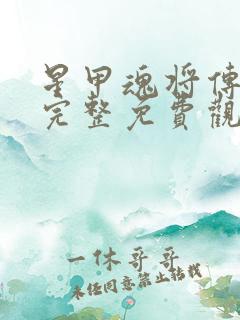 星甲魂将傳
完整免費觀
一休哥哥
未经同意禁止转载